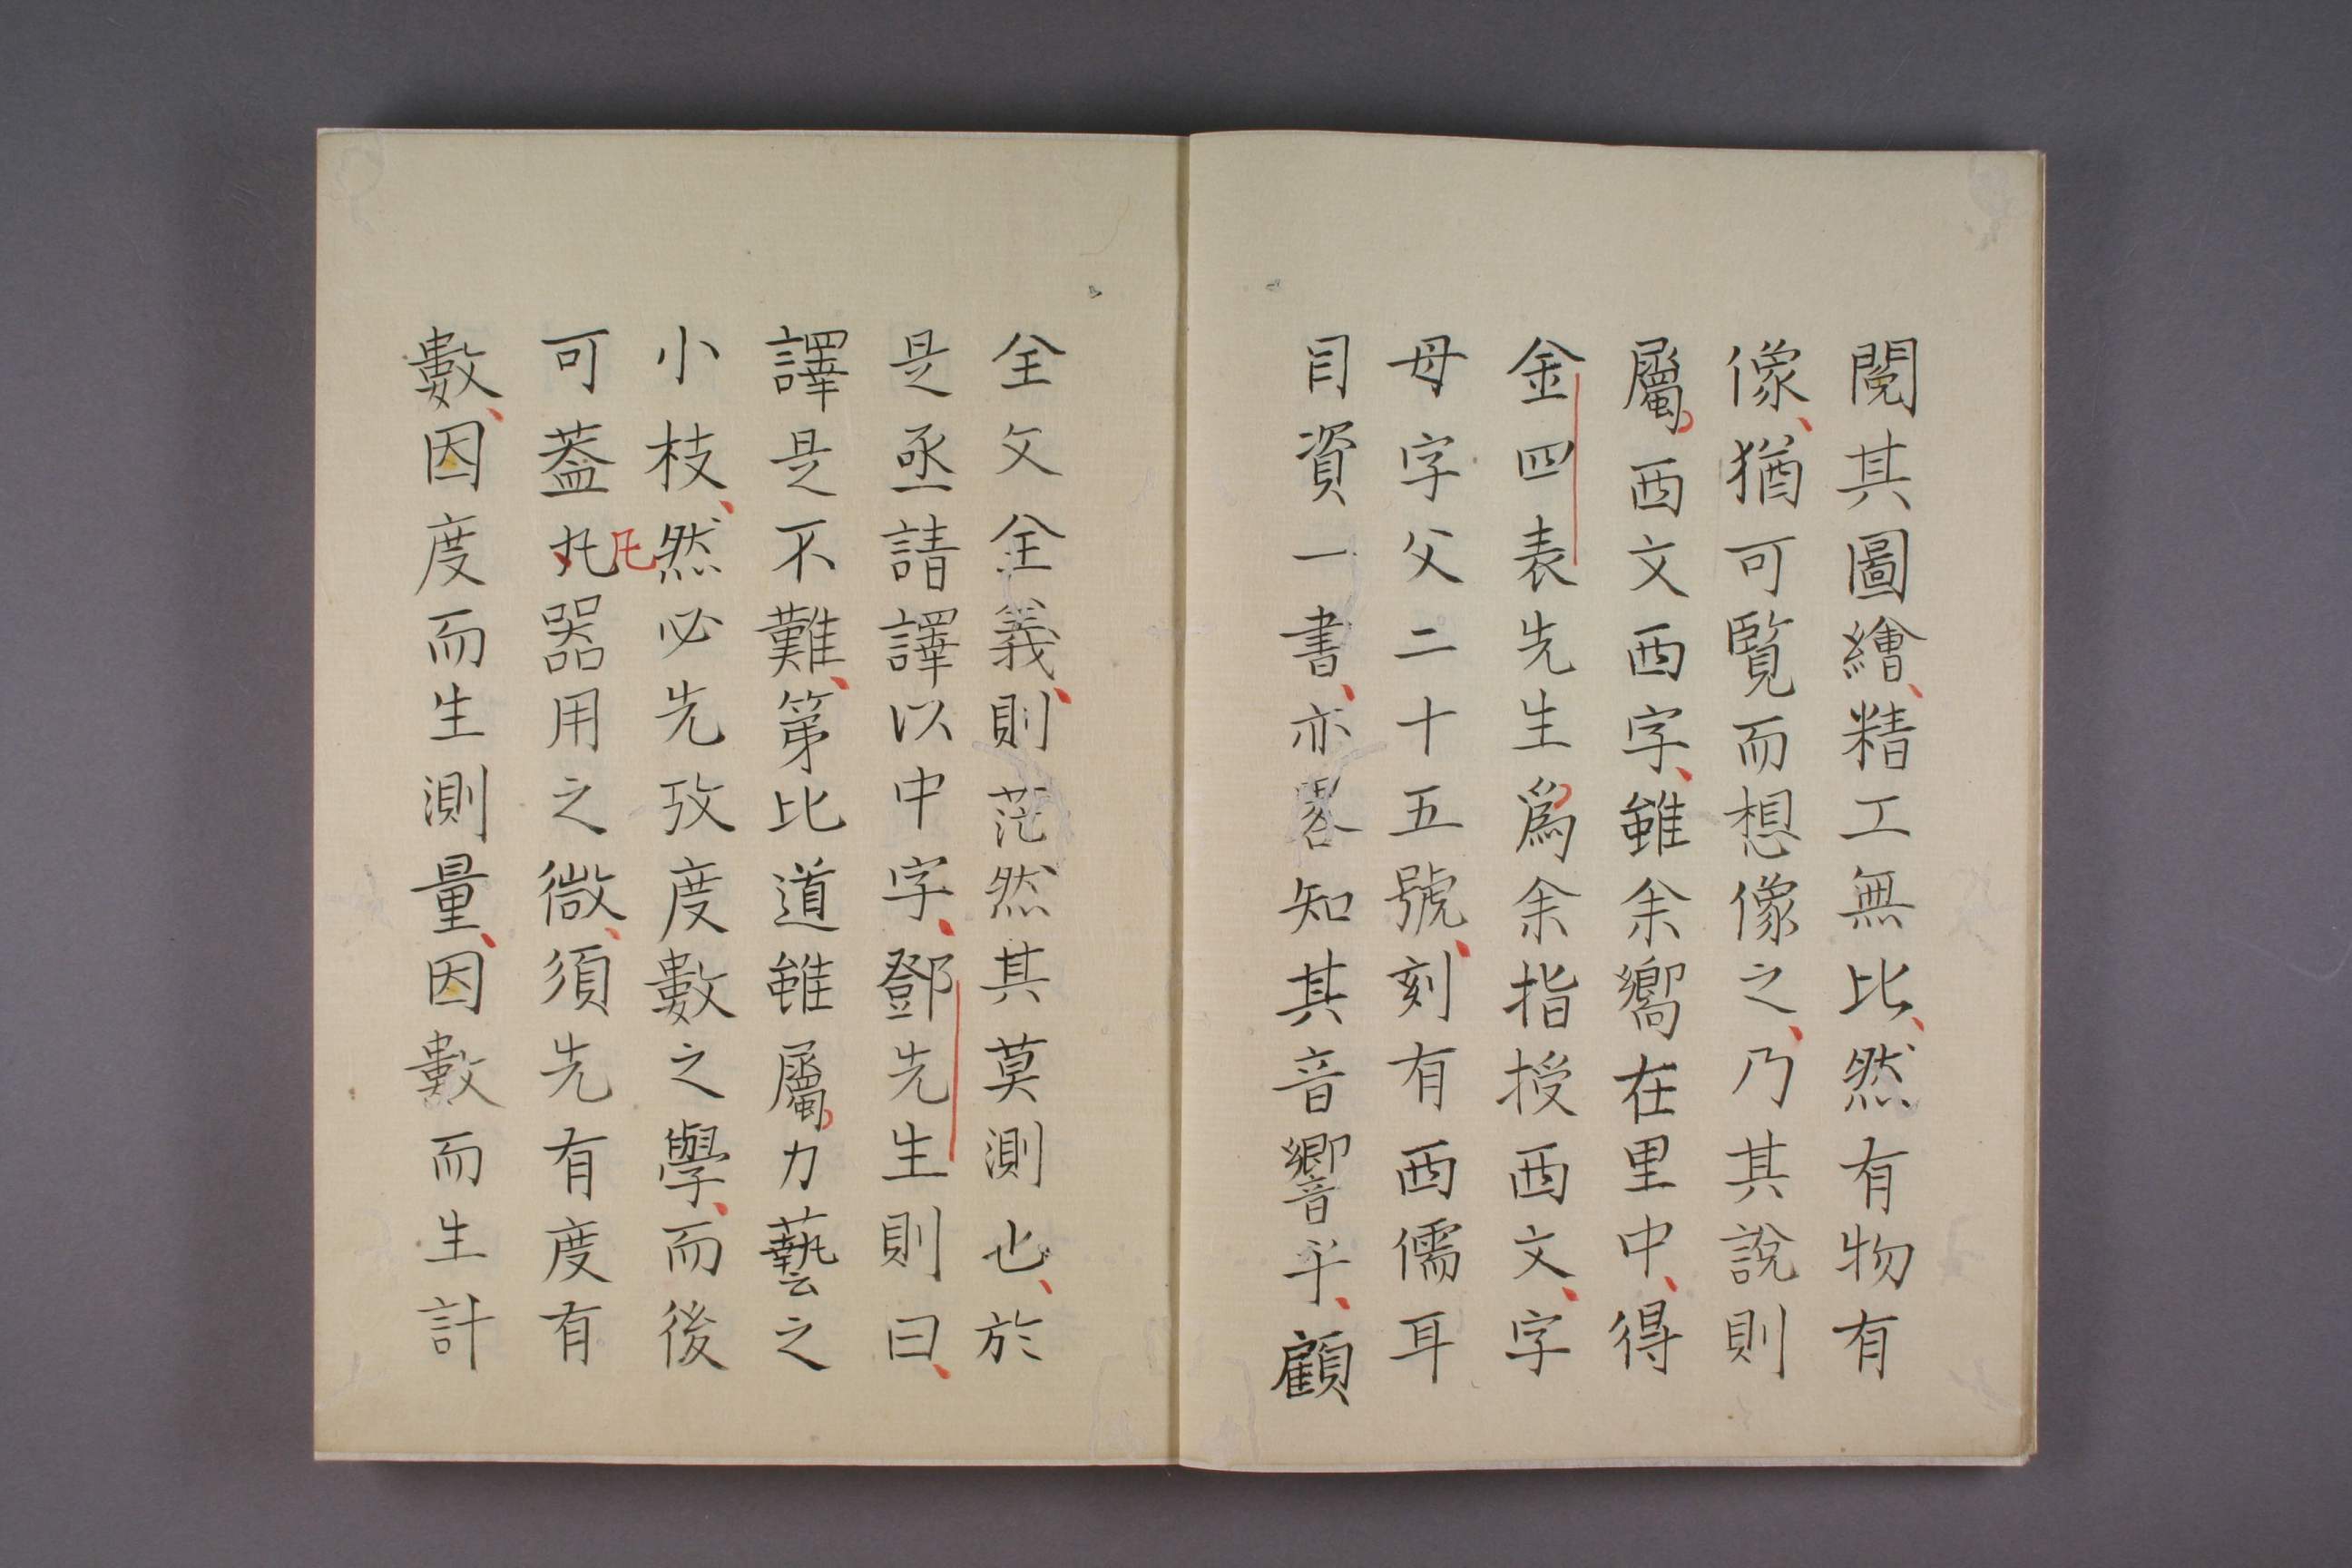 閱其圖繪、精工無比、然有物有
像、猶可覧而想像之、乃其說則
屬西文西字、雖余嚮在里中、得
金四表先生爲余指授西文、字
母字父二十五號、刻有西儒耳
目資一書、亦畧知其音響乎、顧
全文全義、則茫然其莫測也、於
是亟請譯以中字、鄧先生則曰、
譯是不難、第比道雖屬力藝之
小枝、然必先攷度數之學、而後
可葢㧌器用之微、須先有度有
數、因度而生測量、因數而生計